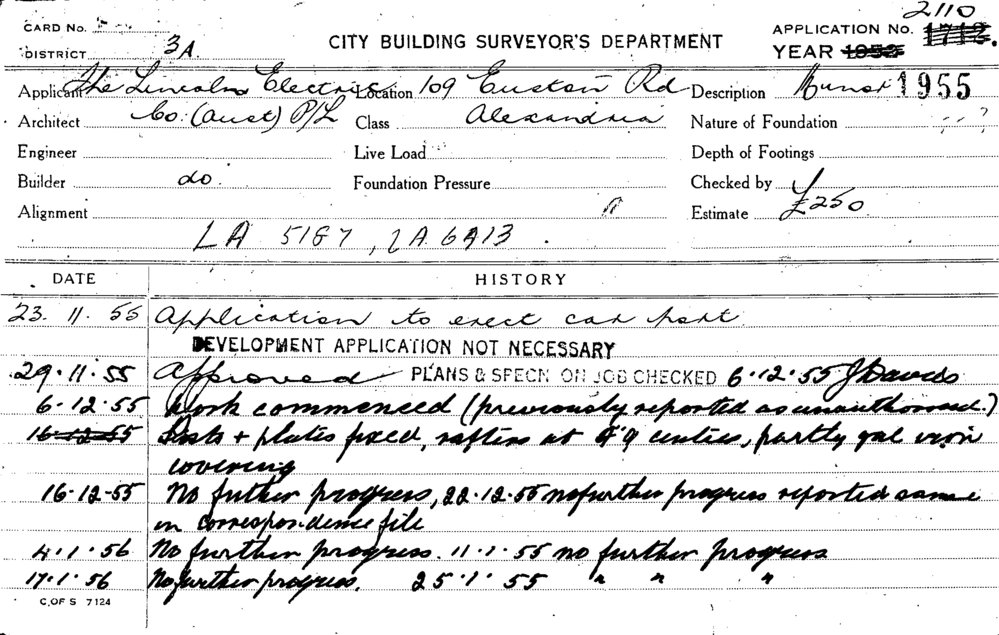 2110
CARD No.
APPLICATION No. 1712.
DISTRICT 3A.
CITY BUILDING SURVEYOR'S DEPARTMENT
YEAR 1953
1955
Applicant The Lincoln Electric Location 109 Euston Rd Description
Architect Co. (Aust) P/L Class Alexandria Nature of Foundation ?
Engineer Live Load Depth of Footings
Builder do. Foundation Pressure Checked by
Alignment Estimate £250
LA 5187, LA 6A13.
DATE HISTORY
23. 11. 55 Application to erect car port.
DEVELOPMENT APPLICATION NOT NECESSARY
29.11.55 Approved PLANS & SPECN ON JOB CHECKED 6.12.55 J Davids
6.12.55 Work commenced (previously reported as unauthorised.)
16-12-55 Posts + plates fixed, rafters at 4'9 centres, partly gal iron
covering
16-12-55 No futher progress, 22.12.55 no further progress reported same
in correspondence file
4.1.56 No further progress. 11.1.55 no further progress
17.1.56 No further progress. 25.1.55 " " "
C. OF S 7124